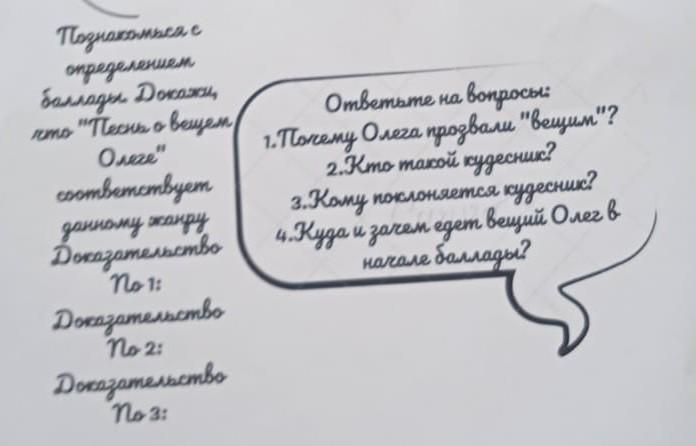 Познакомься с
определением
баллады. Докажи,
что "Песнь о вещем
Олеге"
соответствует
данному жанру
Доказательство
№ 1:
Доказательство
№ 2:
Доказательство
№ 3:
Ответьте на вопросы:
1.Почему Олега прозвали "вещим"?
2.Кто такой кудесник?
3.Кому поклоняется кудесник?
4.Куда и зачем едет вещий Олег в
начале баллады?